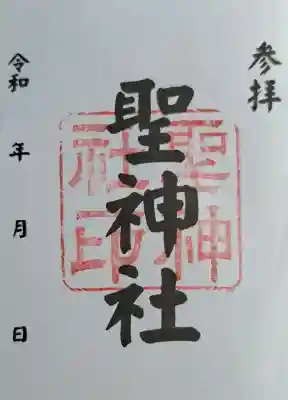 参拝
聖神社
聖神
社印
令和　年　月　日